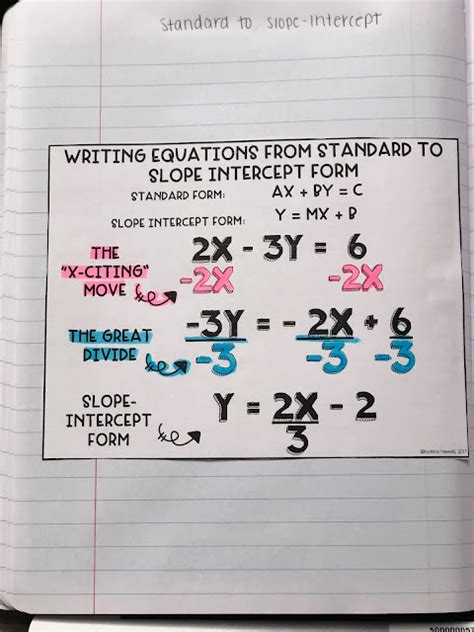 Standard to Slope-Intercept
WRITING EQUATIONS FROM STANDARD TO
SLOPE INTERCEPT FORM
STANDARD FORM: AX + BY = C
SLOPE INTERCEPT FORM: Y = MX + B
THE
"X-CITING"
MOVE
2X - 3Y = 6
-2X -2X
THE GREAT
DIVIDE
-3Y = - 2X + 6
-3 -3 -3
SLOPE-
INTERCEPT
FORM
Y = 2X - 2
3